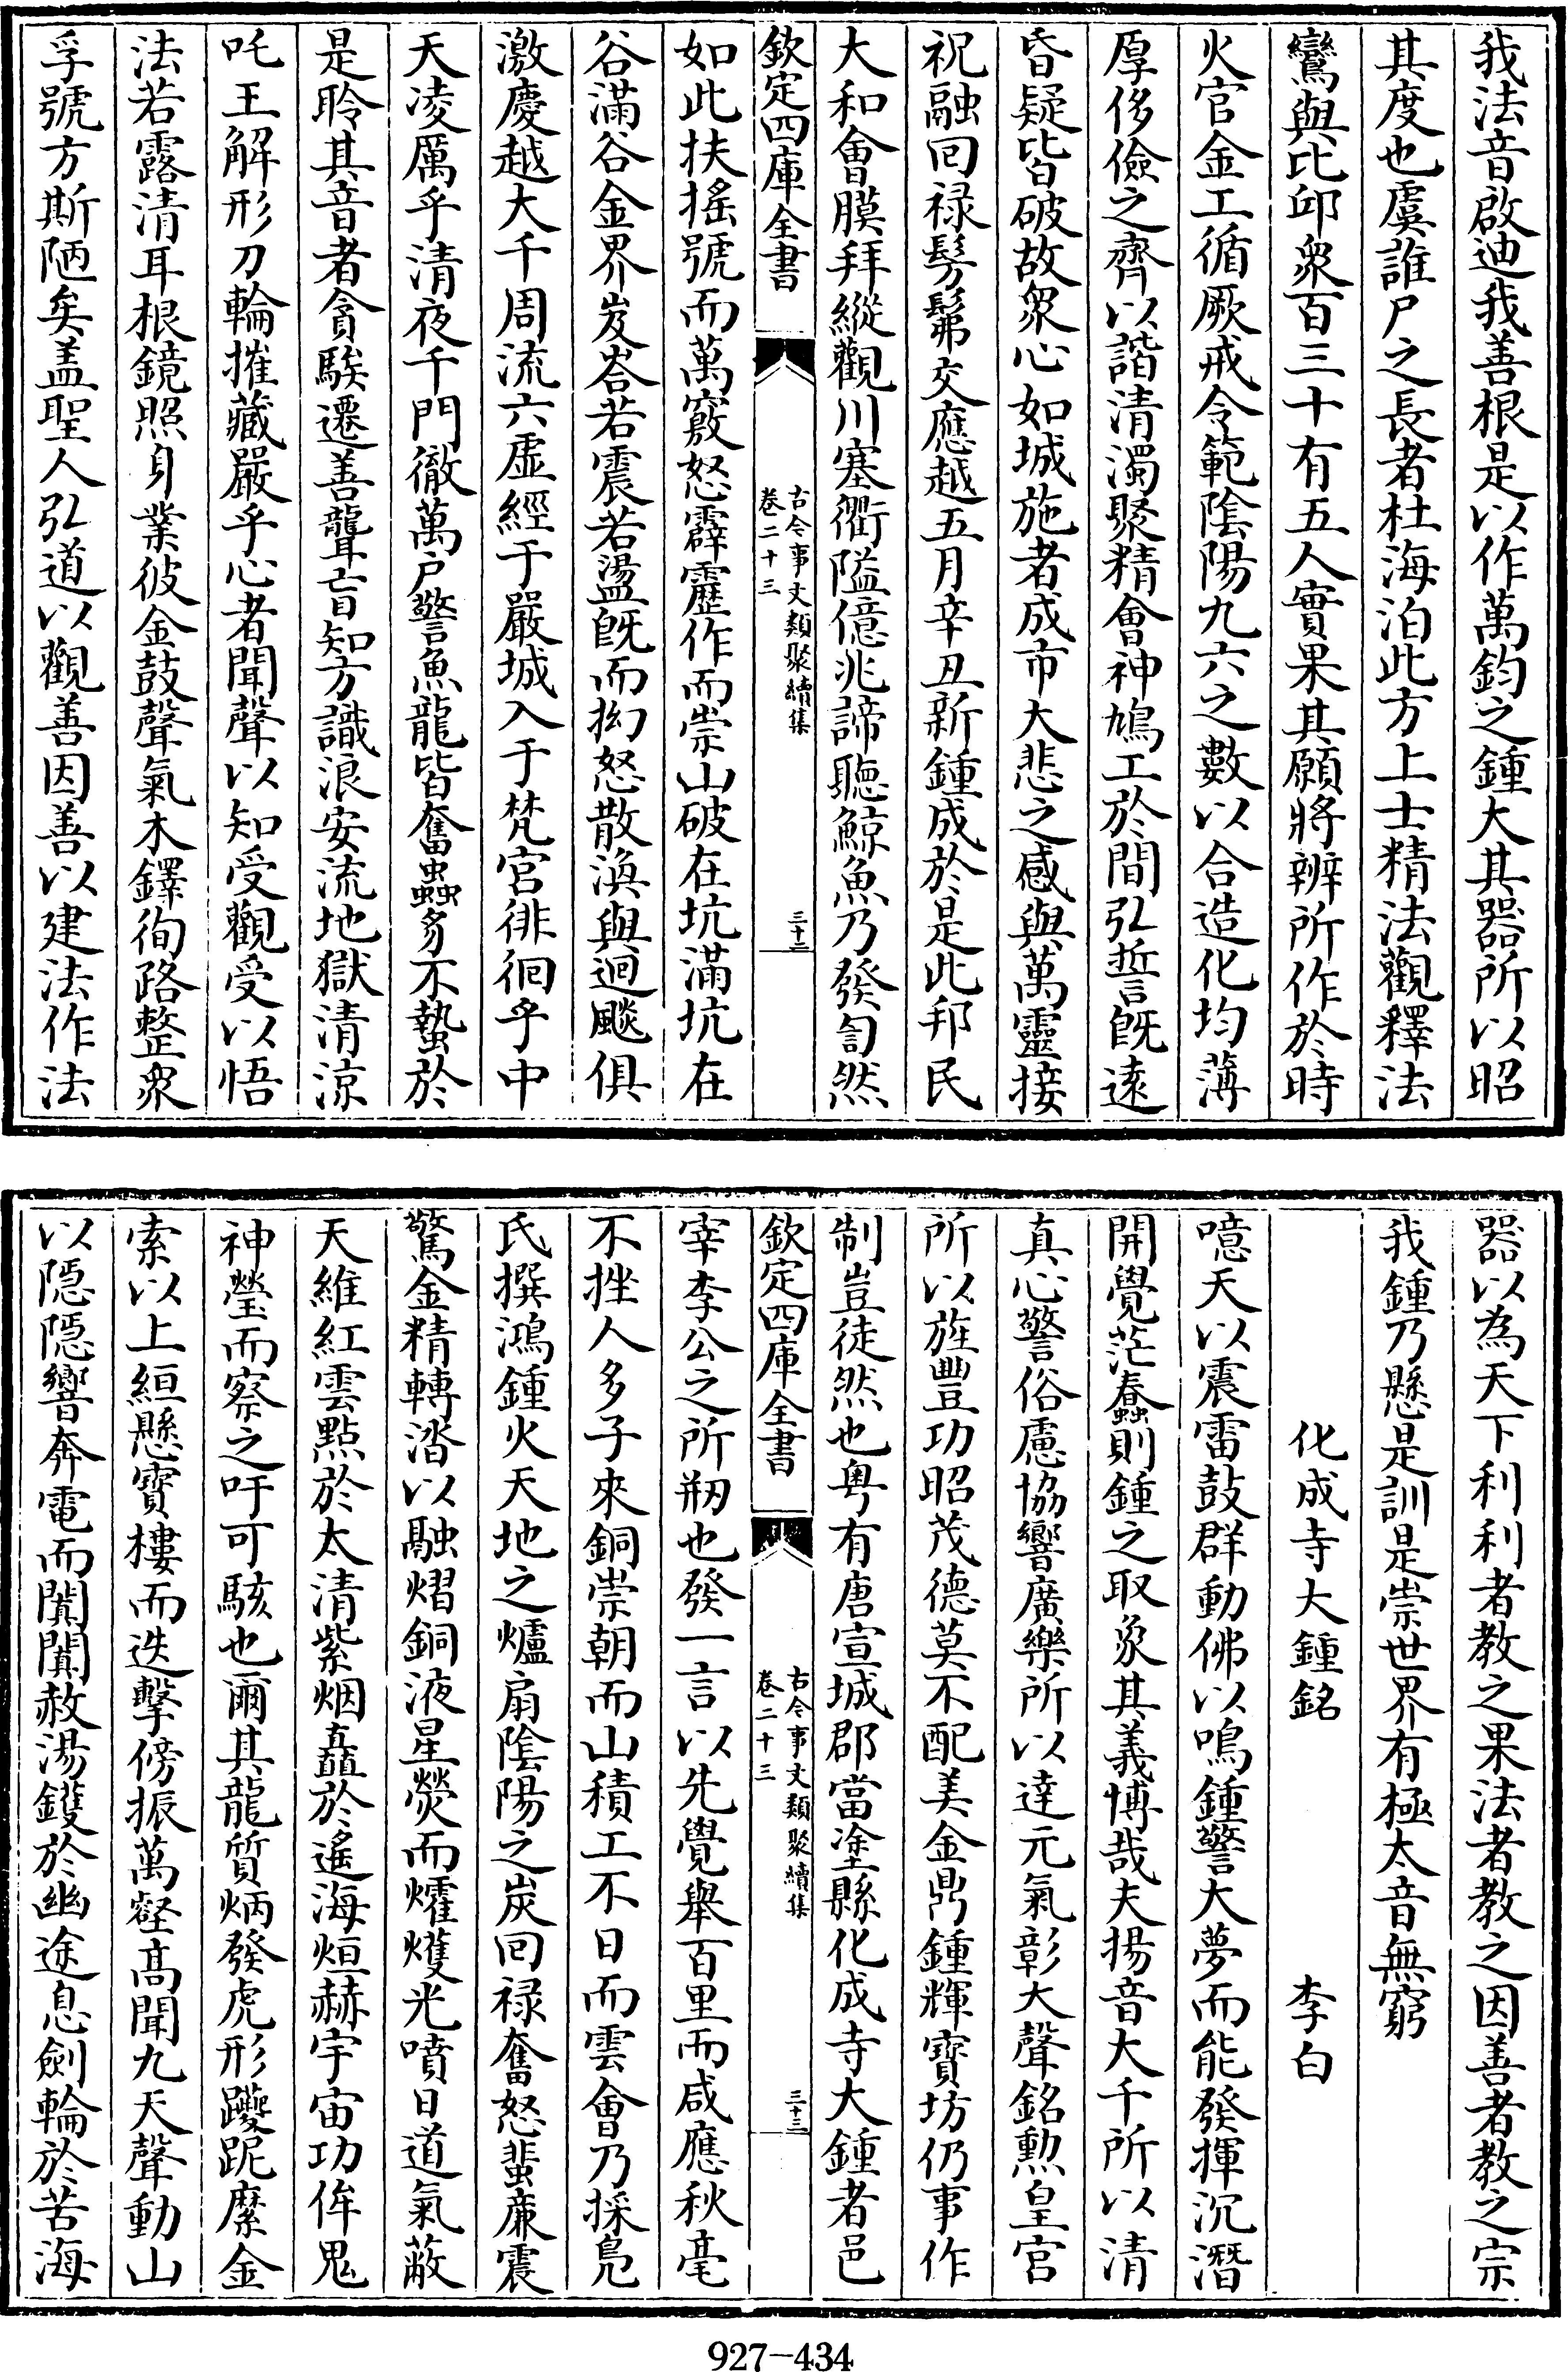 我法音啟迪我善根是以作萬鈞之鍾大其器所以昭
其度也虞誰尸之長者杜海泊此方上士精法觀釋法
鸞與比邱衆百三十有五人實果其願將辨所作於時
火官金工循厥戒令範陰陽九六之數以合造化均薄
厚侈儉之齊以諧清濁聚精會神鳩工於間弘誓旣逺
昏疑皆破故衆心如城施者成市大悲之感與萬靈接
祝融回禄髣髴交應越五月辛丑新鍾成於是此邦民
大和會膜拜縱觀川塞衢隘億兆諦聽鯨魚乃發訇然
欽定四庫全書
古今事文類聚續集
卷二十三
三十二
如此扶搖號而萬竅怒霹靂作而崇山破在坑滿坑在
谷滿谷金界岌峉若震若盪旣而抝怒散渙與迴飈俱
激慶越大千周流六虛經于嚴城入于梵宫徘徊乎中
天凌厲乎清夜千門徹萬户警魚龍皆奮蟲豸不蟄於
是聆其音者貪騃遷善聾盲知方識浪安流地獄清涼
吒王解形刀輪摧藏嚴乎心者聞聲以知受觀受以悟
法若露清耳根鏡照身業彼金鼓聲氣木鐸徇路整衆
孚號方斯陋矣盖聖人弘道以觀善因善以建法作法
器以為天下利利者教之果法者教之因善者教之宗
我鍾乃懸是訓是崇世界有極太音無窮
化成寺大鍾銘 李白
噫天以震雷鼓群動佛以鳴鍾警大夢而能發揮沉潛
開覺茫蠢則鍾之取象其義博哉夫揚音大千所以清
真心警俗慮協響廣樂所以達元氣彰大聲銘勲皇宫
所以旌豐功昭茂德莫不配美金鼎鍾輝寳坊仍事作
制豈徒然也粤有唐宣城郡當塗縣化成寺大鍾者邑
欽定四庫全書
古今事文類聚續集
卷二十三
三十三
宰李公之所刱也發一言以先覺舉百里而咸應秋毫
不挫人多子來銅崇朝而山積工不日而雲會乃採鳬
氏撰鴻鍾火天地之爐扇陰陽之炭回禄奮怒蜚亷震
驚金精轉涾以融熠銅液星熒而爟爡光噴日道氣蔽
天維紅雲㸃於太清紫烟矗於遙海烜赫宇宙功侔鬼
神瑩而察之吁可駭也爾其龍質炳發虎形躨跜縻金
索以上絙懸寳樓而迭擊傍振萬壑高聞九天聲動山
以隠隠響奔電而闐闐赦湯鑊於幽途息劍輪於苦海
927-434